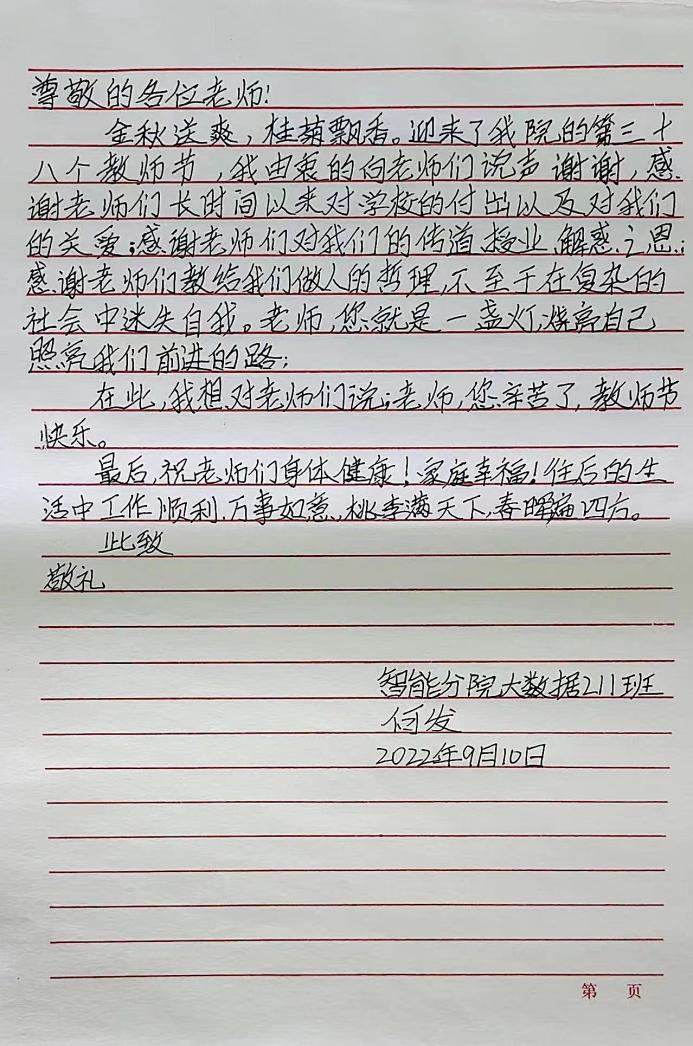 尊敬的各位老师!
金秋送爽，桂菊飘香。迎来了我院的第三十
八个教师节，我由衷的向老师们说声谢谢，感
谢老师们长时间以来对学校的付出以及对我们
的关爱;感谢老师们对我们的传道授业、解惑之恩;
感谢老师们教给我们做人的哲理,不至于在复杂的
社会中迷失自我。老师,您就是一盏灯,燃亮自己
照亮我们前进的路;
在此,我想对老师们说;老师,您辛苦了,教师节
快乐。
最后,祝老师们身体健康!家庭幸福!往后的生
活中工作顺利,万事如意,桃李满天下,春晖遍四方。
此致
敬礼
智能分院大数据211班
何发
2022年9月10日
第 页